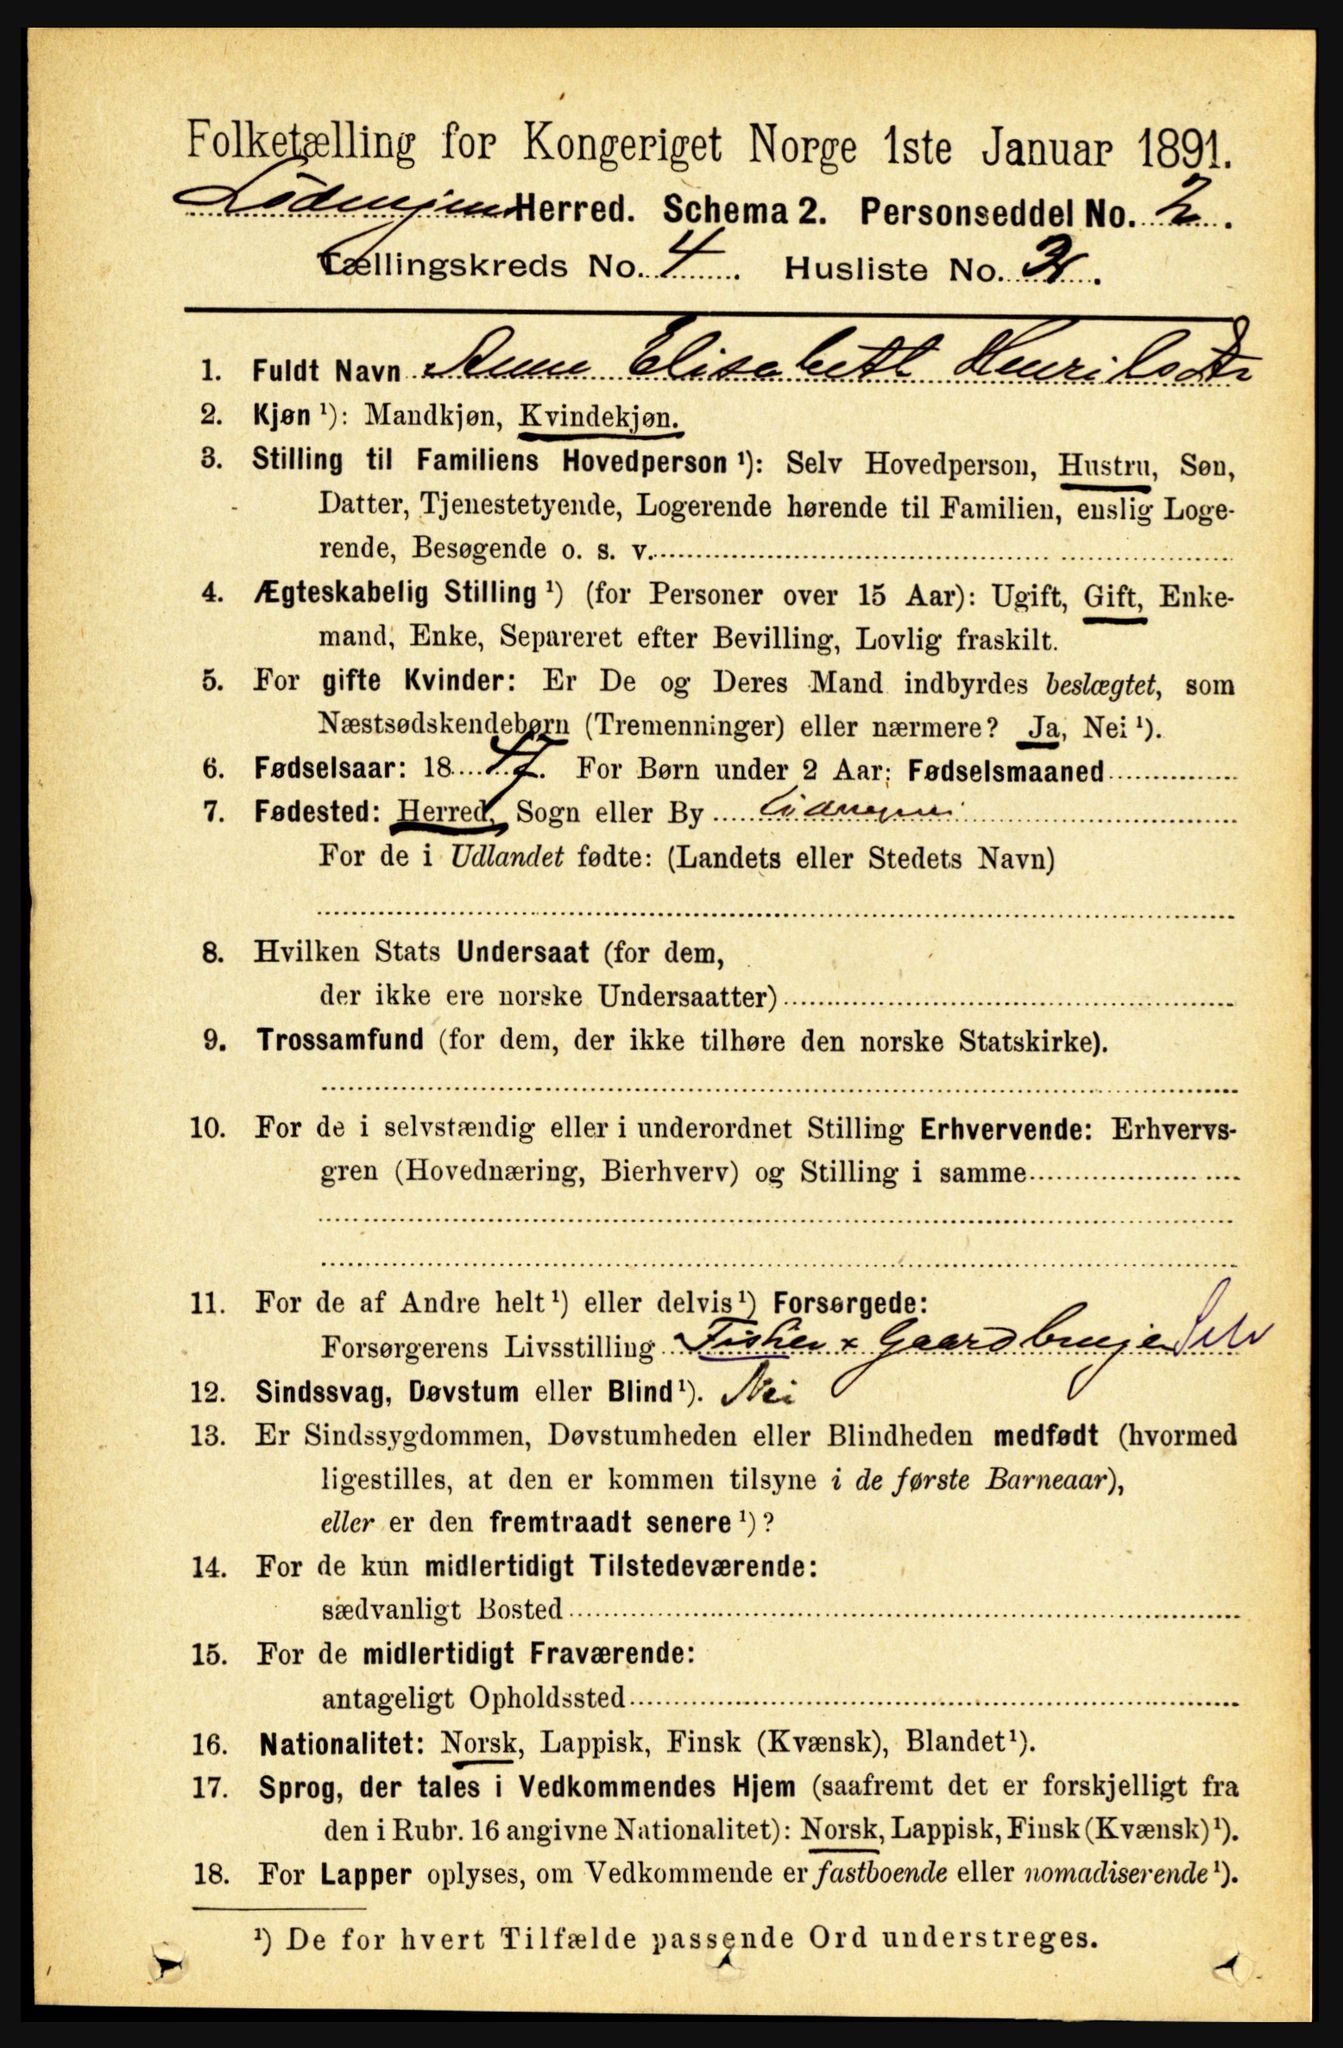 Folketælling for Kongeriget Norge 1ste Januar 1891.
Lødingen Herred. Schema 2. Personseddel No. 2.
Tællingskreds No. 4. Husliste No.
1. Fuldt Navn Anne Elisabeth Henriksdtr
2. Kjøn ¹): Mandkjøn, Kvindekjøn.
3. Stilling til Familiens Hovedperson ¹): Selv Hovedperson, Hustru, Søn,
Datter, Tjenestetyende, Logerende hørende til Familien, enslig Loge-
rende, Besøgende o. s. v.
4. Ægteskabelig Stilling ¹) (for Personer over 15 Aar): Ugift, Gift, Enke-
mand, Enke, Separeret efter Bevilling, Lovlig fraskilt.
5. For gifte Kvinder: Er De og Deres Mand indbyrdes beslægtet, som
Næstsødskendebørn (Tremenninger) eller nærmere? Ja, Nei ¹).
6. Fødselsaar: 1847. For Børn under 2 Aar: Fødselsmaaned
7. Fødested: Herred, Sogn eller By Lødingen
For de i Udlandet fødte: (Landets eller Stedets Navn)
8. Hvilken Stats Undersaat (for dem,
der ikke ere norske Undersaatter)
9. Trossamfund (for dem, der ikke tilhøre den norske Statskirke).
10. For de i selvstændig eller i underordnet Stilling Erhvervende: Erhvervs-
gren (Hovednæring, Bierhverv) og Stilling i samme
11. For de af Andre helt ¹) eller delvis ¹) Forsørgede:
Forsørgerens Livsstilling Fisker & Gaardbruger Selv
12. Sindssvag, Døvstum eller Blind ¹). Nei
13. Er Sindssygdommen, Døvstumheden eller Blindheden medfødt (hvormed
ligestilles, at den er kommen tilsyne i de første Barneaar),
eller er den fremtraadt senere ¹)?
14. For de kun midlertidigt Tilstedeværende:
sædvanligt Bosted
15. For de midlertidigt Fraværende:
antageligt Opholdssted
16. Nationalitet: Norsk, Lappisk, Finsk (Kvænsk), Blandet ¹).
17. Sprog, der tales i Vedkommendes Hjem (saafremt det er forskjelligt fra
den i Rubr. 16 angivne Nationalitet): Norsk, Lappisk, Finsk (Kvænsk) ¹).
18. For Lapper oplyses, om Vedkommende er fastboende eller nomadiserende ¹).
¹) De for hvert Tilfælde passende Ord understreges.